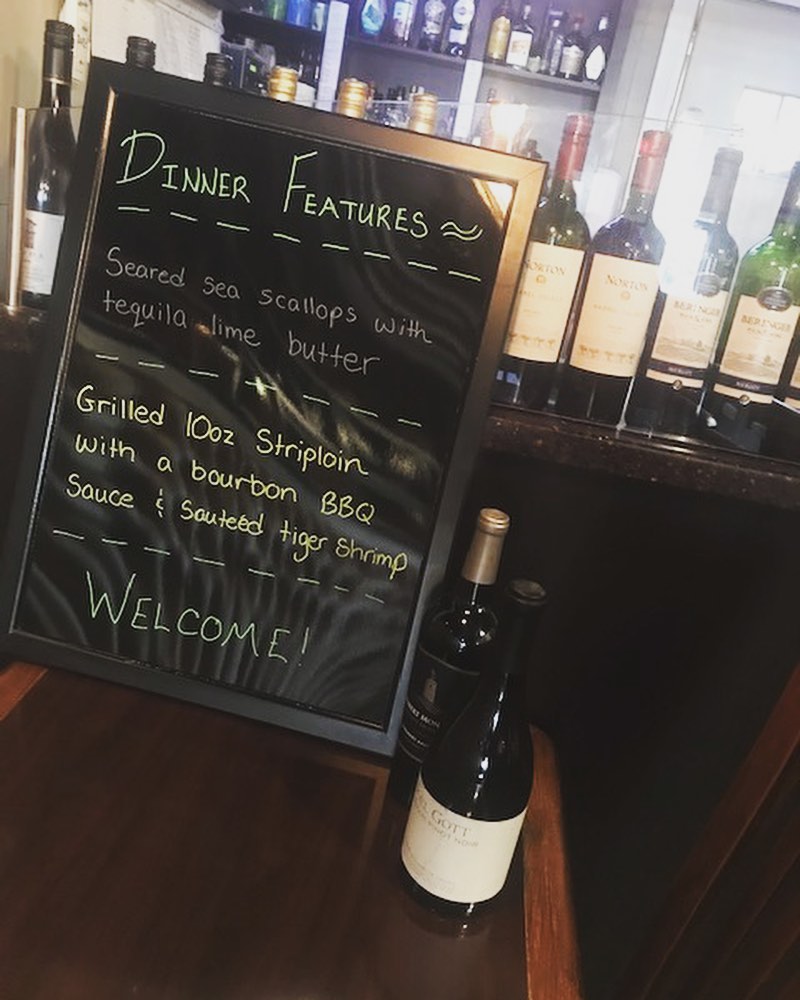 DINNER FEATURES
Seared sea scallops with
tequila lime butter
Grilled 10oz Striploin
with a bourbon BBQ
Sauce & Sauteéd tiger Shrimp
WELCOME!
NORTON
NORTON
BERINGER
BERINGER
GOTT
PINOT NOIR